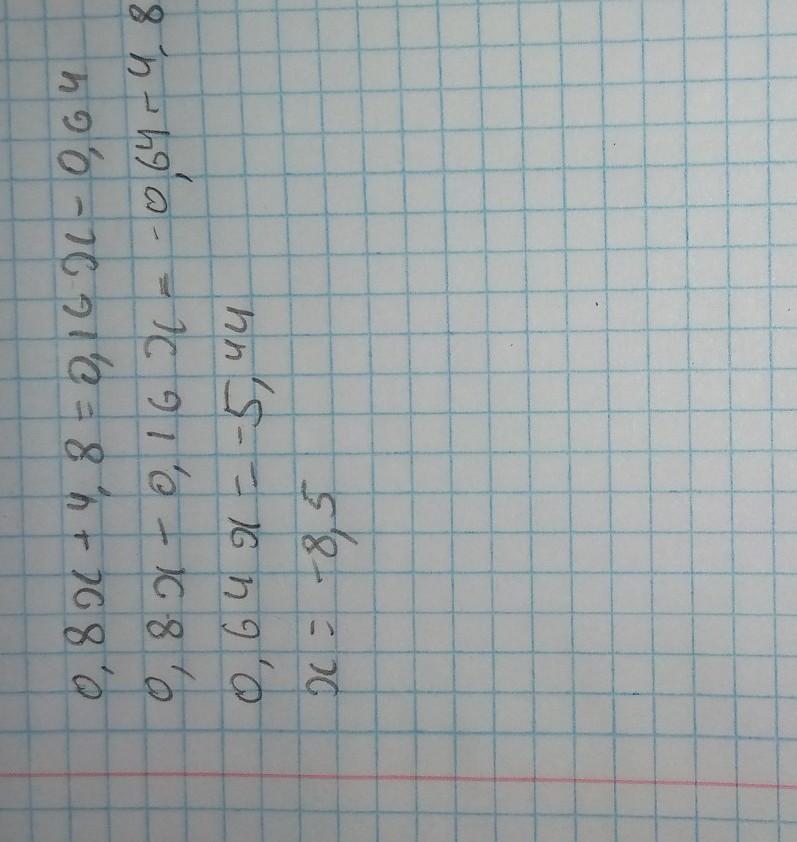 0,8x+4,8=0,16x-0,64
0,8x-0,16x=-0,64-4,8
0,64x=-5,44
x=-8,5